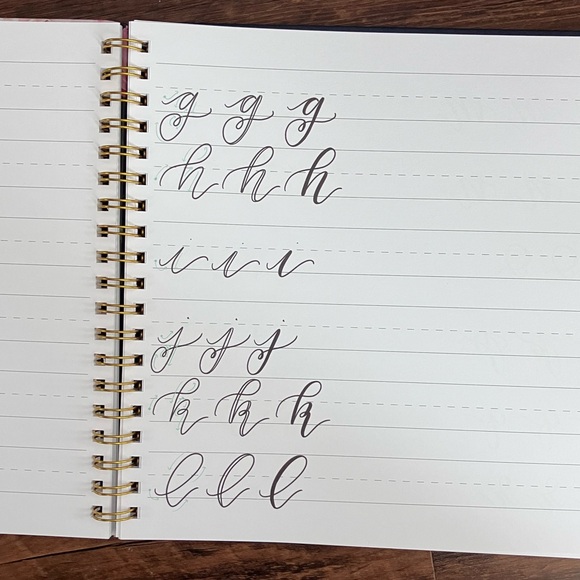 g g g
h h h
i i i
j j j
k k k
l l l